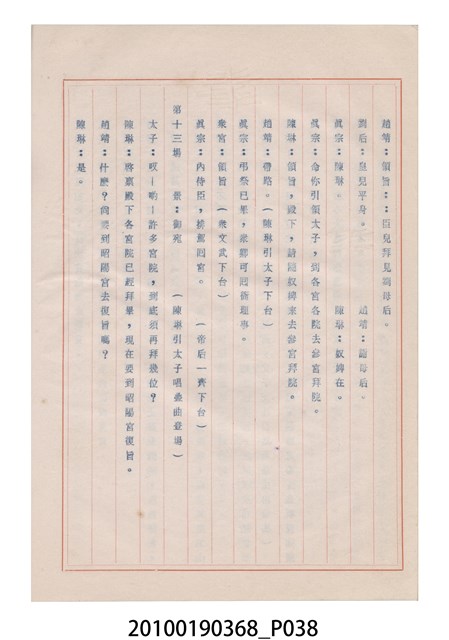 趙靖：：臣兒拜見國母后。
劉后：皇兒平身。　　　趙靖：謝母后。
眞宗：陳琳。　　　　　陳琳：奴婢在。
眞宗：命你引領太子，到各宮各院去參宮拜院。
陳琳：領旨，殿下，請隨奴婢來去參宮拜院。
趙靖：帶路。（陳琳引太子下台）
眞宗：弔祭已畢，衆卿可回衙理事。
衆官：領旨（衆文武下台）
眞宗：內侍臣，擺駕回宮。　（帝后一齊下台）
第十三場　景：御苑　　（陳琳引太子唱叠曲登場）
太子：哎－喲－許多宮院，到底須再拜幾位？
陳琳：啓禀殿下各宮院已經拜畢，現在要到昭陽宮復旨。
趙靖：什麽？尙要到昭陽宮去復旨嗎？
陳琳：是。
20100190368_P038